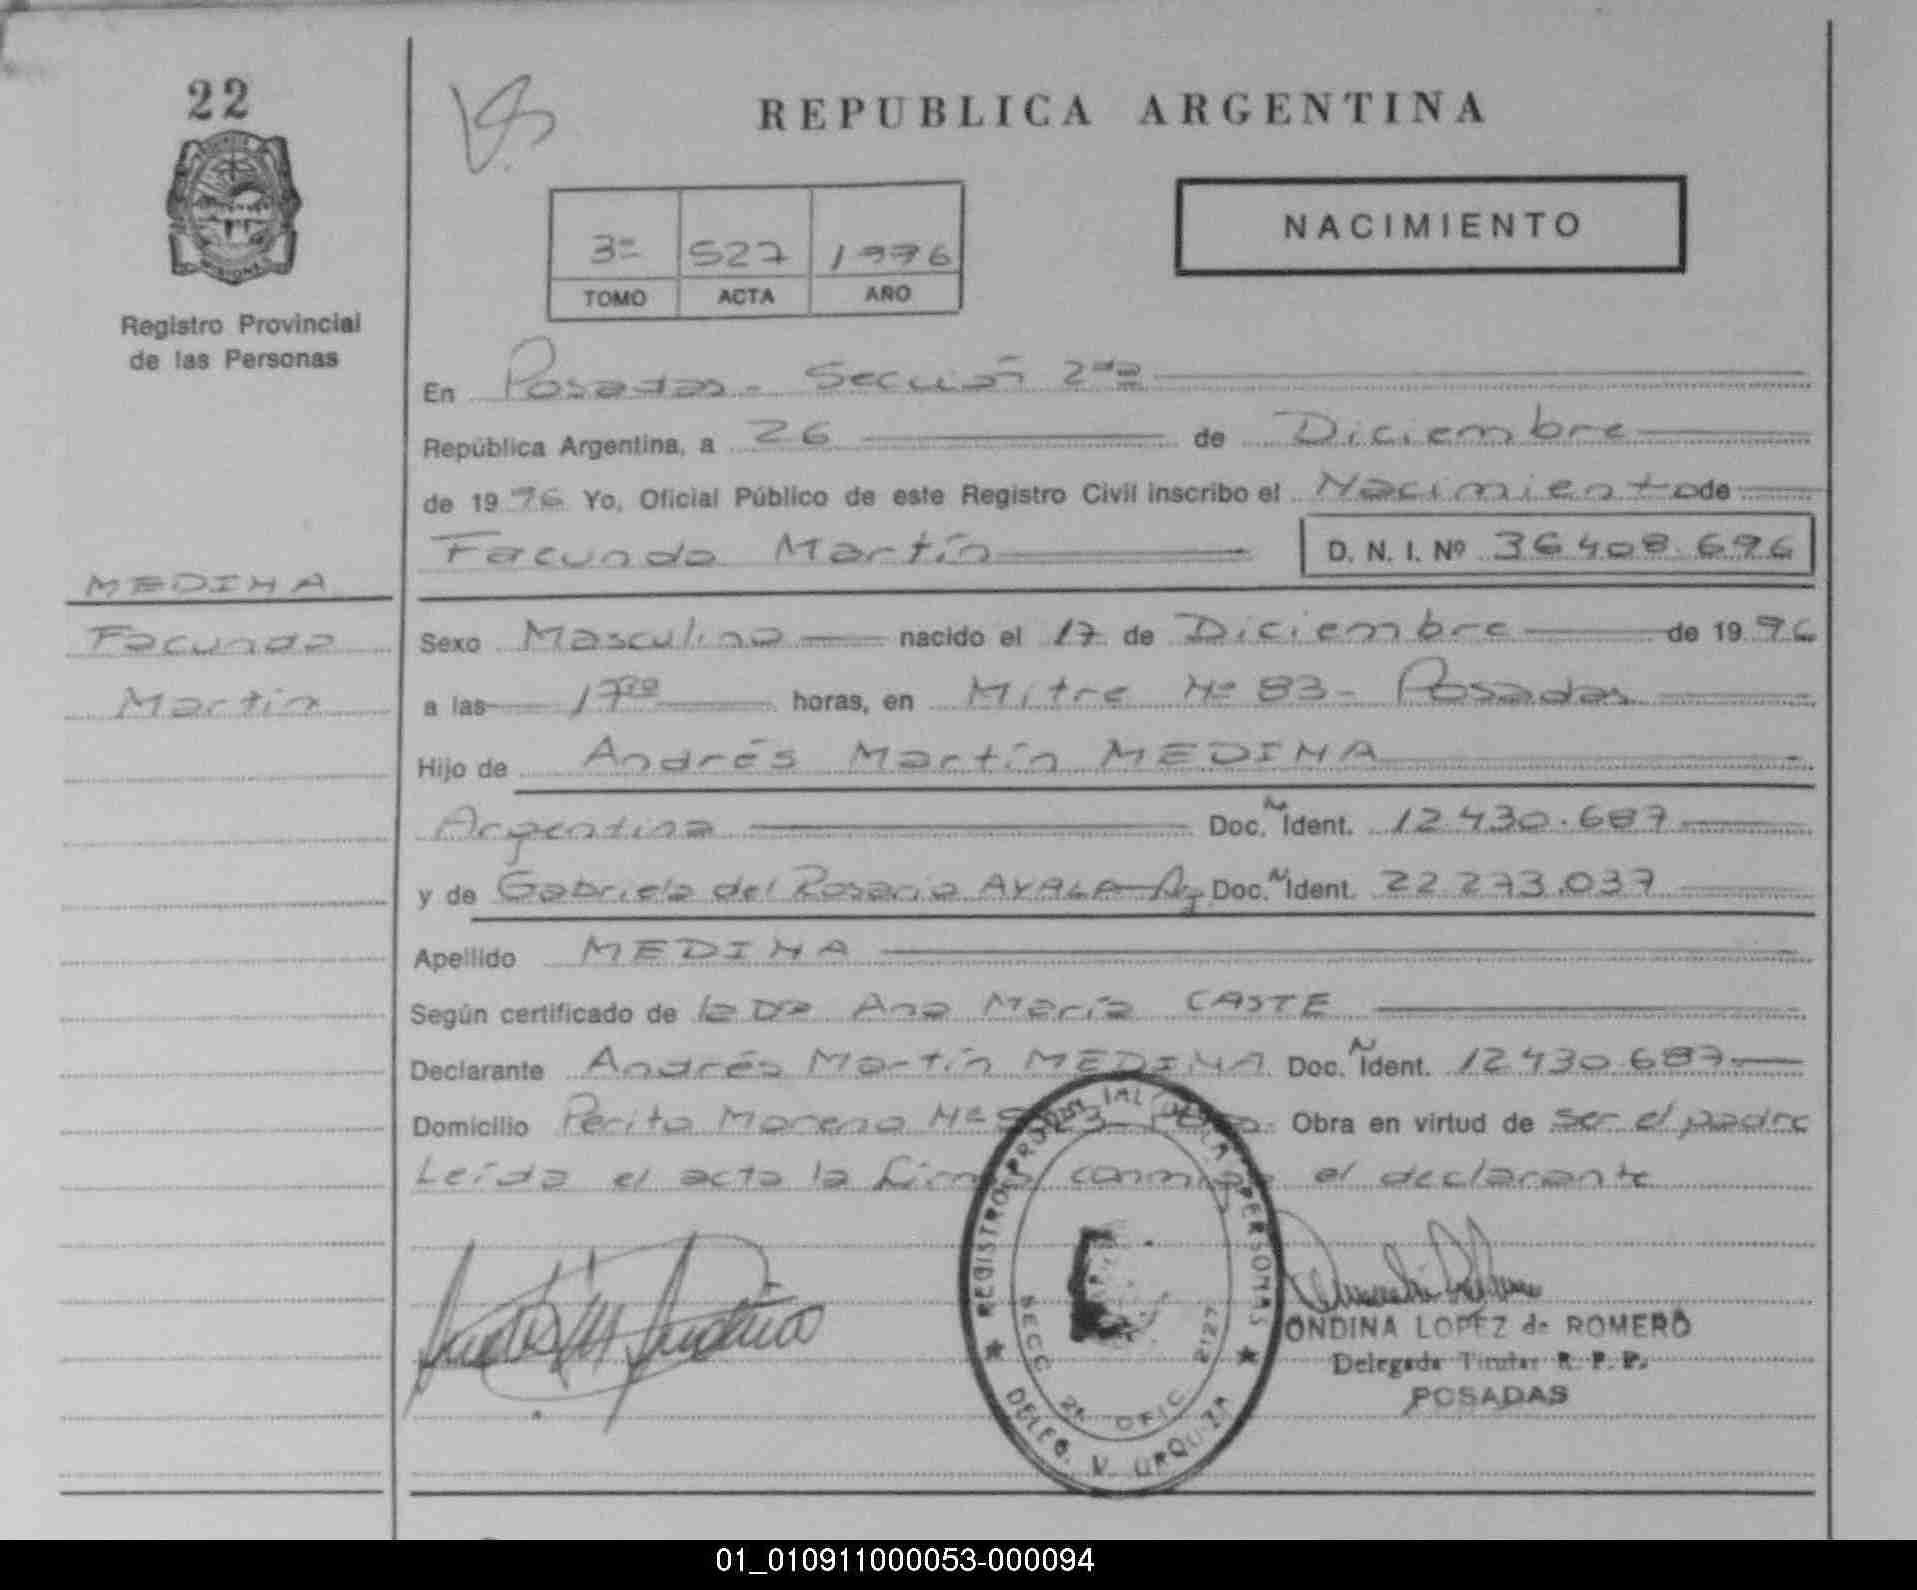 22
REPUBLICA ARGENTINA
NACIMIENTO
3º 527 1996
TOMO ACTA AÑO
Registro Provincial
de las Personas
En Posadas - Sección 2da
República Argentina, a 26 de Diciembre
de 1996 Yo, Oficial Público de este Registro Civil inscribo el Nacimiento de
Facundo Martín D. N. I. Nº 36 408.696
MEDINA
Facundo
Martín
Sexo Masculino nacido el 17 de Diciembre de 1996
a las 17 horas, en Mitre Nº 83 - Posadas
Hijo de Andrés Martín MEDINA
Argentina Doc. Ident. 12 430.687
y de Gabriela del Rosario AYALA Doc. Ident. 22 273.037
Apellido MEDINA
Según certificado de la Dra Ana María CASTE
Declarante Andrés Martín MEDINA Doc. Ident. 12 430 687
Domicilio Perito Moreno Nº Obra en virtud de ser el padre
Leída el acta la firma conmigo el declarante
REGISTRO PROVINCIAL DE LAS PERSONAS
SECC 2ª OFIC 2127
DELEG. V. URQUIZA
ONDINA LOPEZ de ROMERO
Delegada Titular R. P. P.
POSADAS
01_010911000053-000094